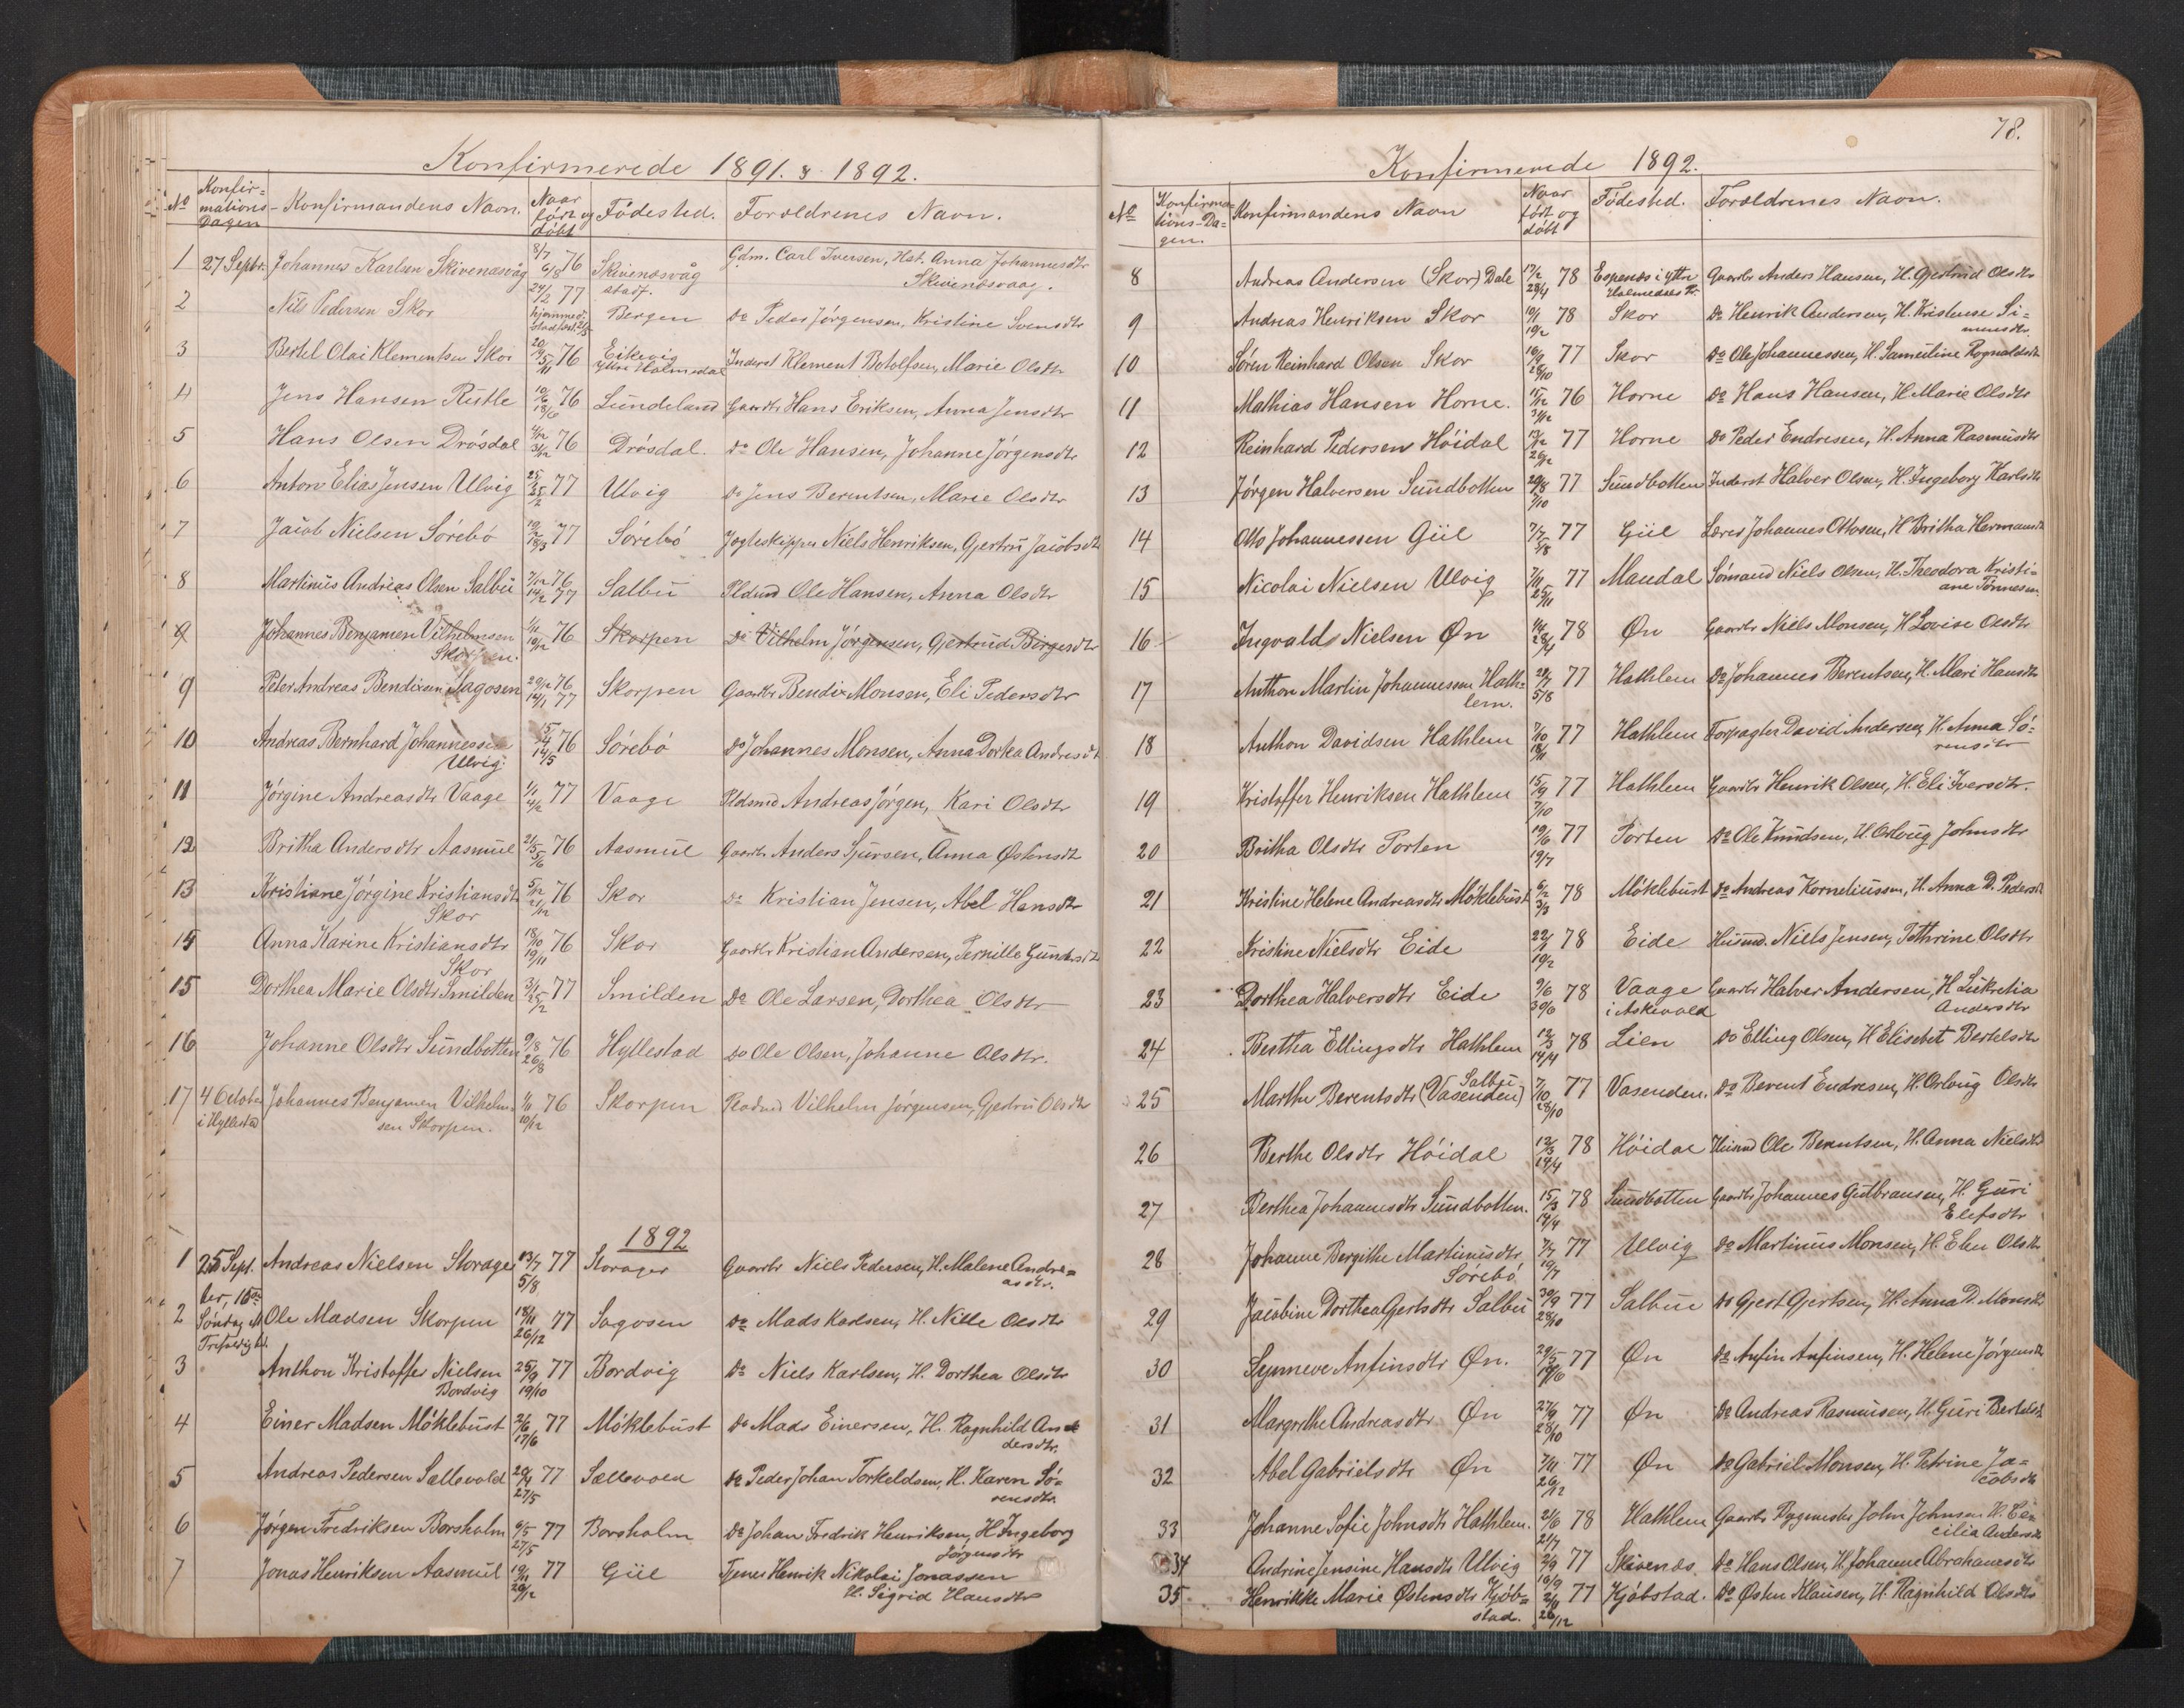 Konfirmerede 1891. & 1892.
No Konfirmations-Dagen Konfirmandens Navn. Naar født og døbt Fødested. Forældrenes Navn.
1 27 Septbr. Johannes Karlsen Skivenæsvåg 8/7 6/8 76 Skivenæsvåg Gdm. Carl Iversen, Hst. Anna Johannesdtr
Skivenæsvaag.
2 Nils Pedersen Skor 24/2 77 hjemmed. Bergen Do Peder Jørgensen, Kristine Svensdtr
3 Bertel Olai Klementsen Skor 76 Eikevig Inderst Klement Botolfsen, Marie Olsdtr
Ytre Holmedal
4 Jens Hansen Rutle 76 Lundeland Gaardbr Hans Eriksen, Anna Jensdtr
5 Hans Olsen Drøsdal 31/12 76 Drøsdal. Do Ole Hansen, Johanne Jørgensdtr
6 Anton Elias Jensen Ulvig 77 Ulvig Do Jens Berentsen, Marie Olsdtr
7 Jacob Nielsen Sørebø 18/3 77 Sørebø Jægteskipper Niels Henriksen, Gjertru Jacobsdtr
8 Martinus Andreas Olsen Salbu 76 14/2 77 Salbu Pldsmd Ole Hansen, Anna Olsdtr
9 Johannes Benjamen Vilhelmsen 1/11 10/12 76 Skorpen Do Vilhelm Jørgensen, Gjertrud Børgesdtr
Skorpen.
9 Peter Andreas Bendixen Sagosen 29/12 76 14/1 77 Skorpen Gaardbr Bendix Monsen, Eli Pedersdtr
10 Andreas Bernhard Johannessen 15/4 14/5 76 Sørebø Do Johannes Monsen, Anna Dorkea Andresdtr
Ulvig.
11 Jørgine Andreasdtr Vaage 1/1 4/2 77 Vaage Pldsmd Andreas Jørgen, Kari Olsdtr
12 Britha Andersdtr Aasmul 21/5 5/6 76 Aasmul Gaardbr Anders Sjursen, Anna Østensdtr
13 Kristiane Jørgine Kristiansdtr 5/12 21/12 76 Skor Do Kristian Jensen, Abel Hansdtr
Skor
14 Anna Karine Kristiansdtr 18/10 19/11 76 Skor Gaardbr Kristian Andersen, Pernille Gundersdtr
Skor
15 Dorthea Marie Olsdtr Smilden 3/1 25/2 77 Smilden Do Ole Larsen, Dorthea Olsdtr
16 Johanne Olsdtr Sundbotten 9/8 26/8 76 Hyllestad Do Ole Olsen, Johanne Olsdtr.
17 4 October Johannes Benjamen Vilhelm- 1/11 10/12 76 Skorpen Pladsmd Vilhelm Jørgensen, Gjertru Olsdtr
i Hyllestad sen Skorpen.
1892
1 25 Sept. Andreas Nielsen Storager 13/7 5/8 77 Storager Gaardbr Niels Pedersen, H. Malene Andre-
asdtr.
ber, 16de
2 Søndag e. Ole Madsen Skorpen 18/11 26/12 77 Sagosen Do Mads Karlsen, H. Nille Olsdtr
Trefoldighd.
3 Anthon Kristoffer Nielsen 25/9 19/10 77 Bordvig Do Niels Karlsen, H. Dorthea Olsdtr
Bordvig
4 Einer Madsen Møklebust 2/6 17/6 77 Møklebust Do Mads Einersen, H. Ragnhild An-
dersdtr.
5 Andreas Pedersen Sællevold 20/4 27/5 77 Sællevold Do Peder Johan Torkeldsen, H. Karen Sø-
rensdtr.
6 Jørgen Fredriksen Borsholm 6/5 27/5 77 Borsholm Do Johan Fredrik Henriksen, H Ingeborg
Jørgensdtr
7 Jonas Henriksen Aasmul 19/11 26/12 77 Giil Tjener Henrik Nikolai Jonassen
H. Sigrid Hansdtr
78.
Konfirmerede 1892.
No Konfirmations-Dagen. Konfirmandens Navn Naar født og døbt Fødested. Forældrenes Navn.
8 Andreas Andersen (Skor) Dale 17/2 28/4 78 Espenæs i ytre Gaardbr Anders Hansen, H. Gjertrud Olsdtr
Holmedals Pr.
9 Andreas Henriksen Skor 10/1 10/2 78 Skor Do Henrik Andersen, H. Kristense Si-
mensdtr
10 Søren Reinhard Olsen Skor 16/9 28/10 77 Skor Do Ole Johannessen, H. Samueline Rognaldsdtr
11 Mathias Hansen Horne. 15/12 31/12 76 Horne Do Hans Hansen, H Marie Olsdtr
12 Reinhard Pedersen Høidal 26/12 77 Horne Do Peder Endresen, H. Anna Rasmusdtr
13 Jørgen Halversen Sundbotten 20/8 7/10 77 Sundbotten Inderst Halver Olsen, H. Ingeborg Karlsdtr
14 Otto Johannessen Giil 7/7 5/8 77 Giil Lærer Johannes Ottosen, H Britha Hermansdtr
15 Nicolai Nielsen Ulvig 7/11 25/11 77 Mandal Sømand Niels Olsen, H. Theodora Kristi-
ane Tønnesen.
16 Ingvald Nielsen Øn 28/4 78 Øn Gaardbr Niels Monsen, H Lovise Olsdtr
17 Anthon Martin Johannessen Hath- 29/7 5/8 77 Hathlem Do Johannes Berentsen, H. Mari Hansdtr
lem.
18 Anthon Davidsen Hathlem 7/10 18/11 77 Hathlem Forpagter David Andersen, H. Anna Sø-
rensdtr
19 Kristoffer Henriksen Hathlem 15/9 7/10 77 Hathlem Gaardbr Henrik Olsen, H. Eli Iversdtr.
20 Britha Olsdtr Porten 19/6 19/7 77 Porten Do Ole Knudsen, H. Orloug Johnsdtr
21 Kristine Helene Andreasdtr Møklebust 6/2 3/3 78 Møklebust Do Andreas Korneliussen, H. Anna D. Pedersdtr
22 Kristine Nielsdtr Eide 22/1 10/2 78 Eide Husmd. Niels Jensen, Tathrine Olsdtr
23 Dorthea Halversdtr Eide 9/6 30/6 78 Vaage Gaardbr Halver Andersen, H Lukretia
i Askevold Andersdtr
24 Berthea Ellingsdtr Hathlem 12/3 14/4 78 Lien Do Elling Olsen, H Elisebet Bertelsdtr
Salbu
25 Marthe Berentsdtr (Vasenden) 7/10 28/10 77 Vasenden. Do Berent Endresen, H. Orloug Olsdtr
26 Berthe Olsdtr Høidal 12/3 14/4 78 Høidal Husmd Ole Berentsen, H. Anna Nielsdtr
27 Berthea Johannesdtr Sundbotten. 15/3 14/4 78 Sundbotten Gaardbr Johannes Gulbransen, H. Guri
Elefsdtr
28 Johanne Bergithe Martinusdtr 7/7 19/7 77 Ulvig Do Martinus Monsen, H. Elen Olsdtr
Sørebø
29 Jacobine Dorthea Gjertsdtr Salbu 30/9 28/10 77 Salbu Do Gjert Gjertsen, H. Anna D. Monsdtr
30 Synneve Anfinsdtr Øn. 29/5 77 Øn Do Anfin Anfinsen, H. Helene Jørgensdtr
31 Margrethe Andreasdtr Øn 27/9 28/10 77 Øn Do Andreas Rasmusen, H. Guri Bertelsdtr
32 Abel Gabrielsdtr Øn 7/11 26/12 77 Øn Do Gabriel Monsen, H. Petrine Ja-
cobsdtr
33 Johanne Sofie Johnsdtr Hathlem. 21/6 21/7 78 Hathlem Gaardbr Bygmester John Johnsen H. Ce-
cilia Andersdtr
34 Andrine Jensine Hansdtr Ulvig 2/9 16/9 77 Skivenæs. Do Hans Olsen, H. Johanne Abrahamsdtr
35 Henrikke Marie Østensdtr Kjøb- 2/11 26/12 77 Kjøbstad. Do Østen Klausen, H. Ragnhild Olsdtr
stad.